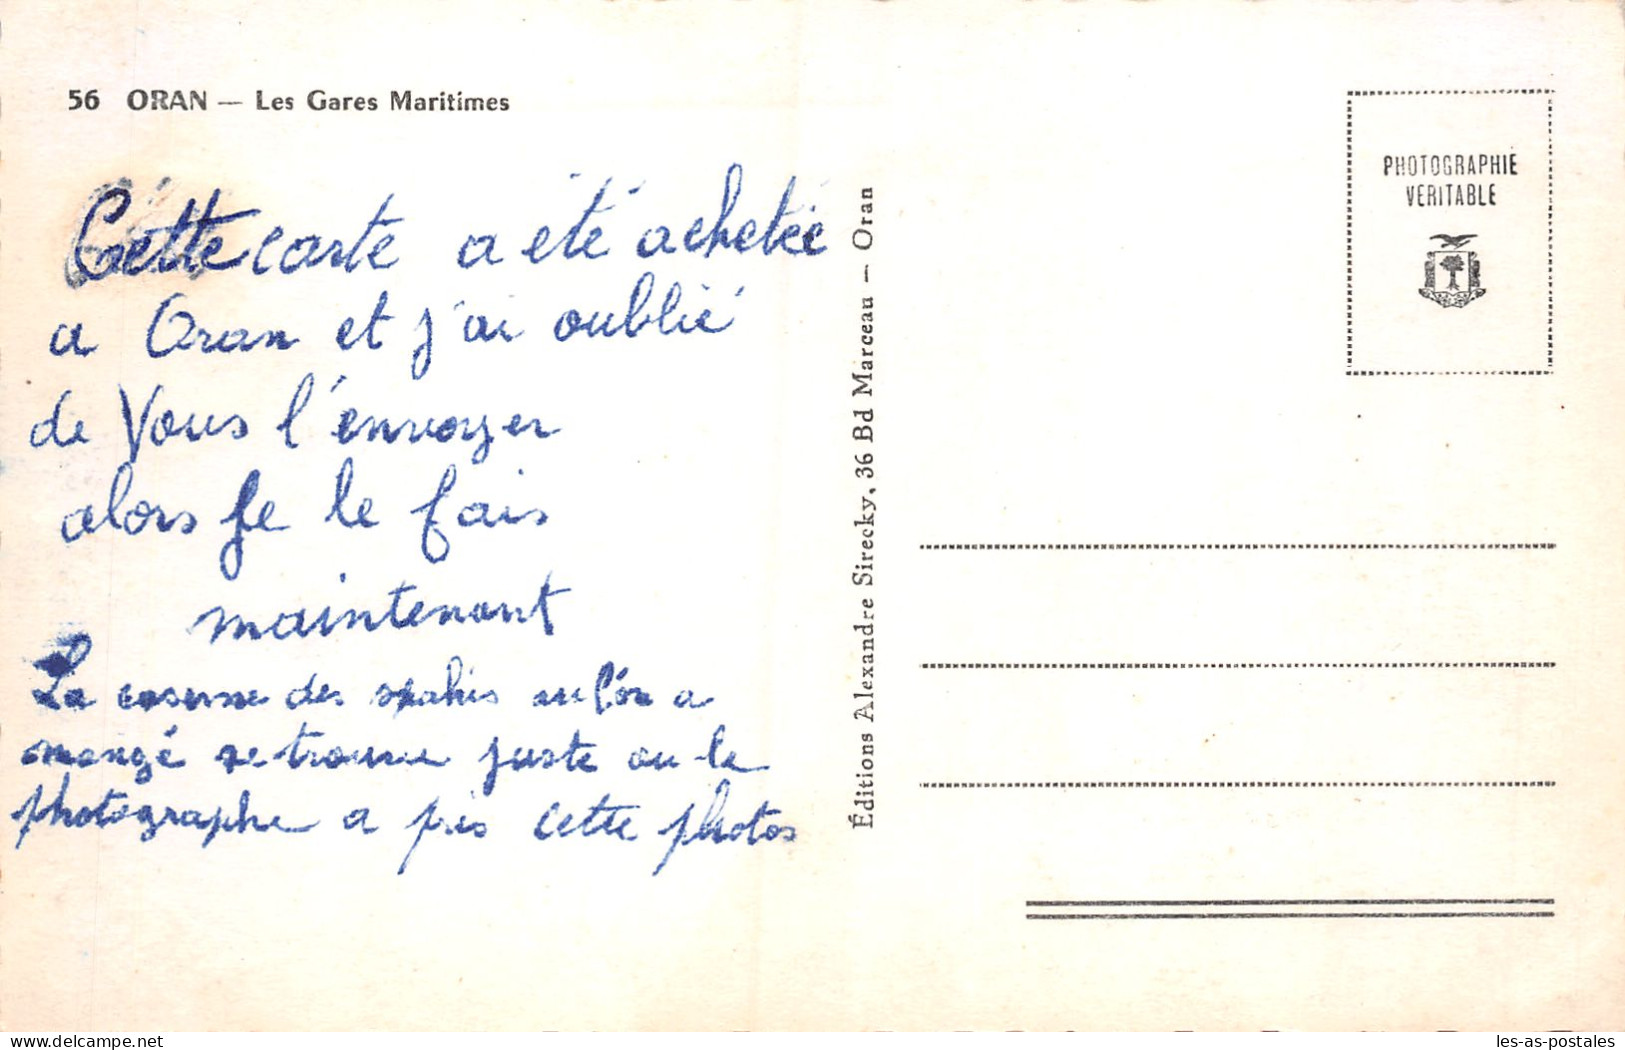 56 ORAN — Les Gares Maritimes
Cette carte a été achetée
a Oran et j'ai oublié
de Vous l'envoyer
alors je le fais
maintenant
La caserne des spahis ou l'on a
mangé se trouve juste ou le
photographe a pris cette photos
Éditions Alexandre Sirecky, 36 Bd Marceau — Oran
PHOTOGRAPHIE
VERITABLE
les-as-postales